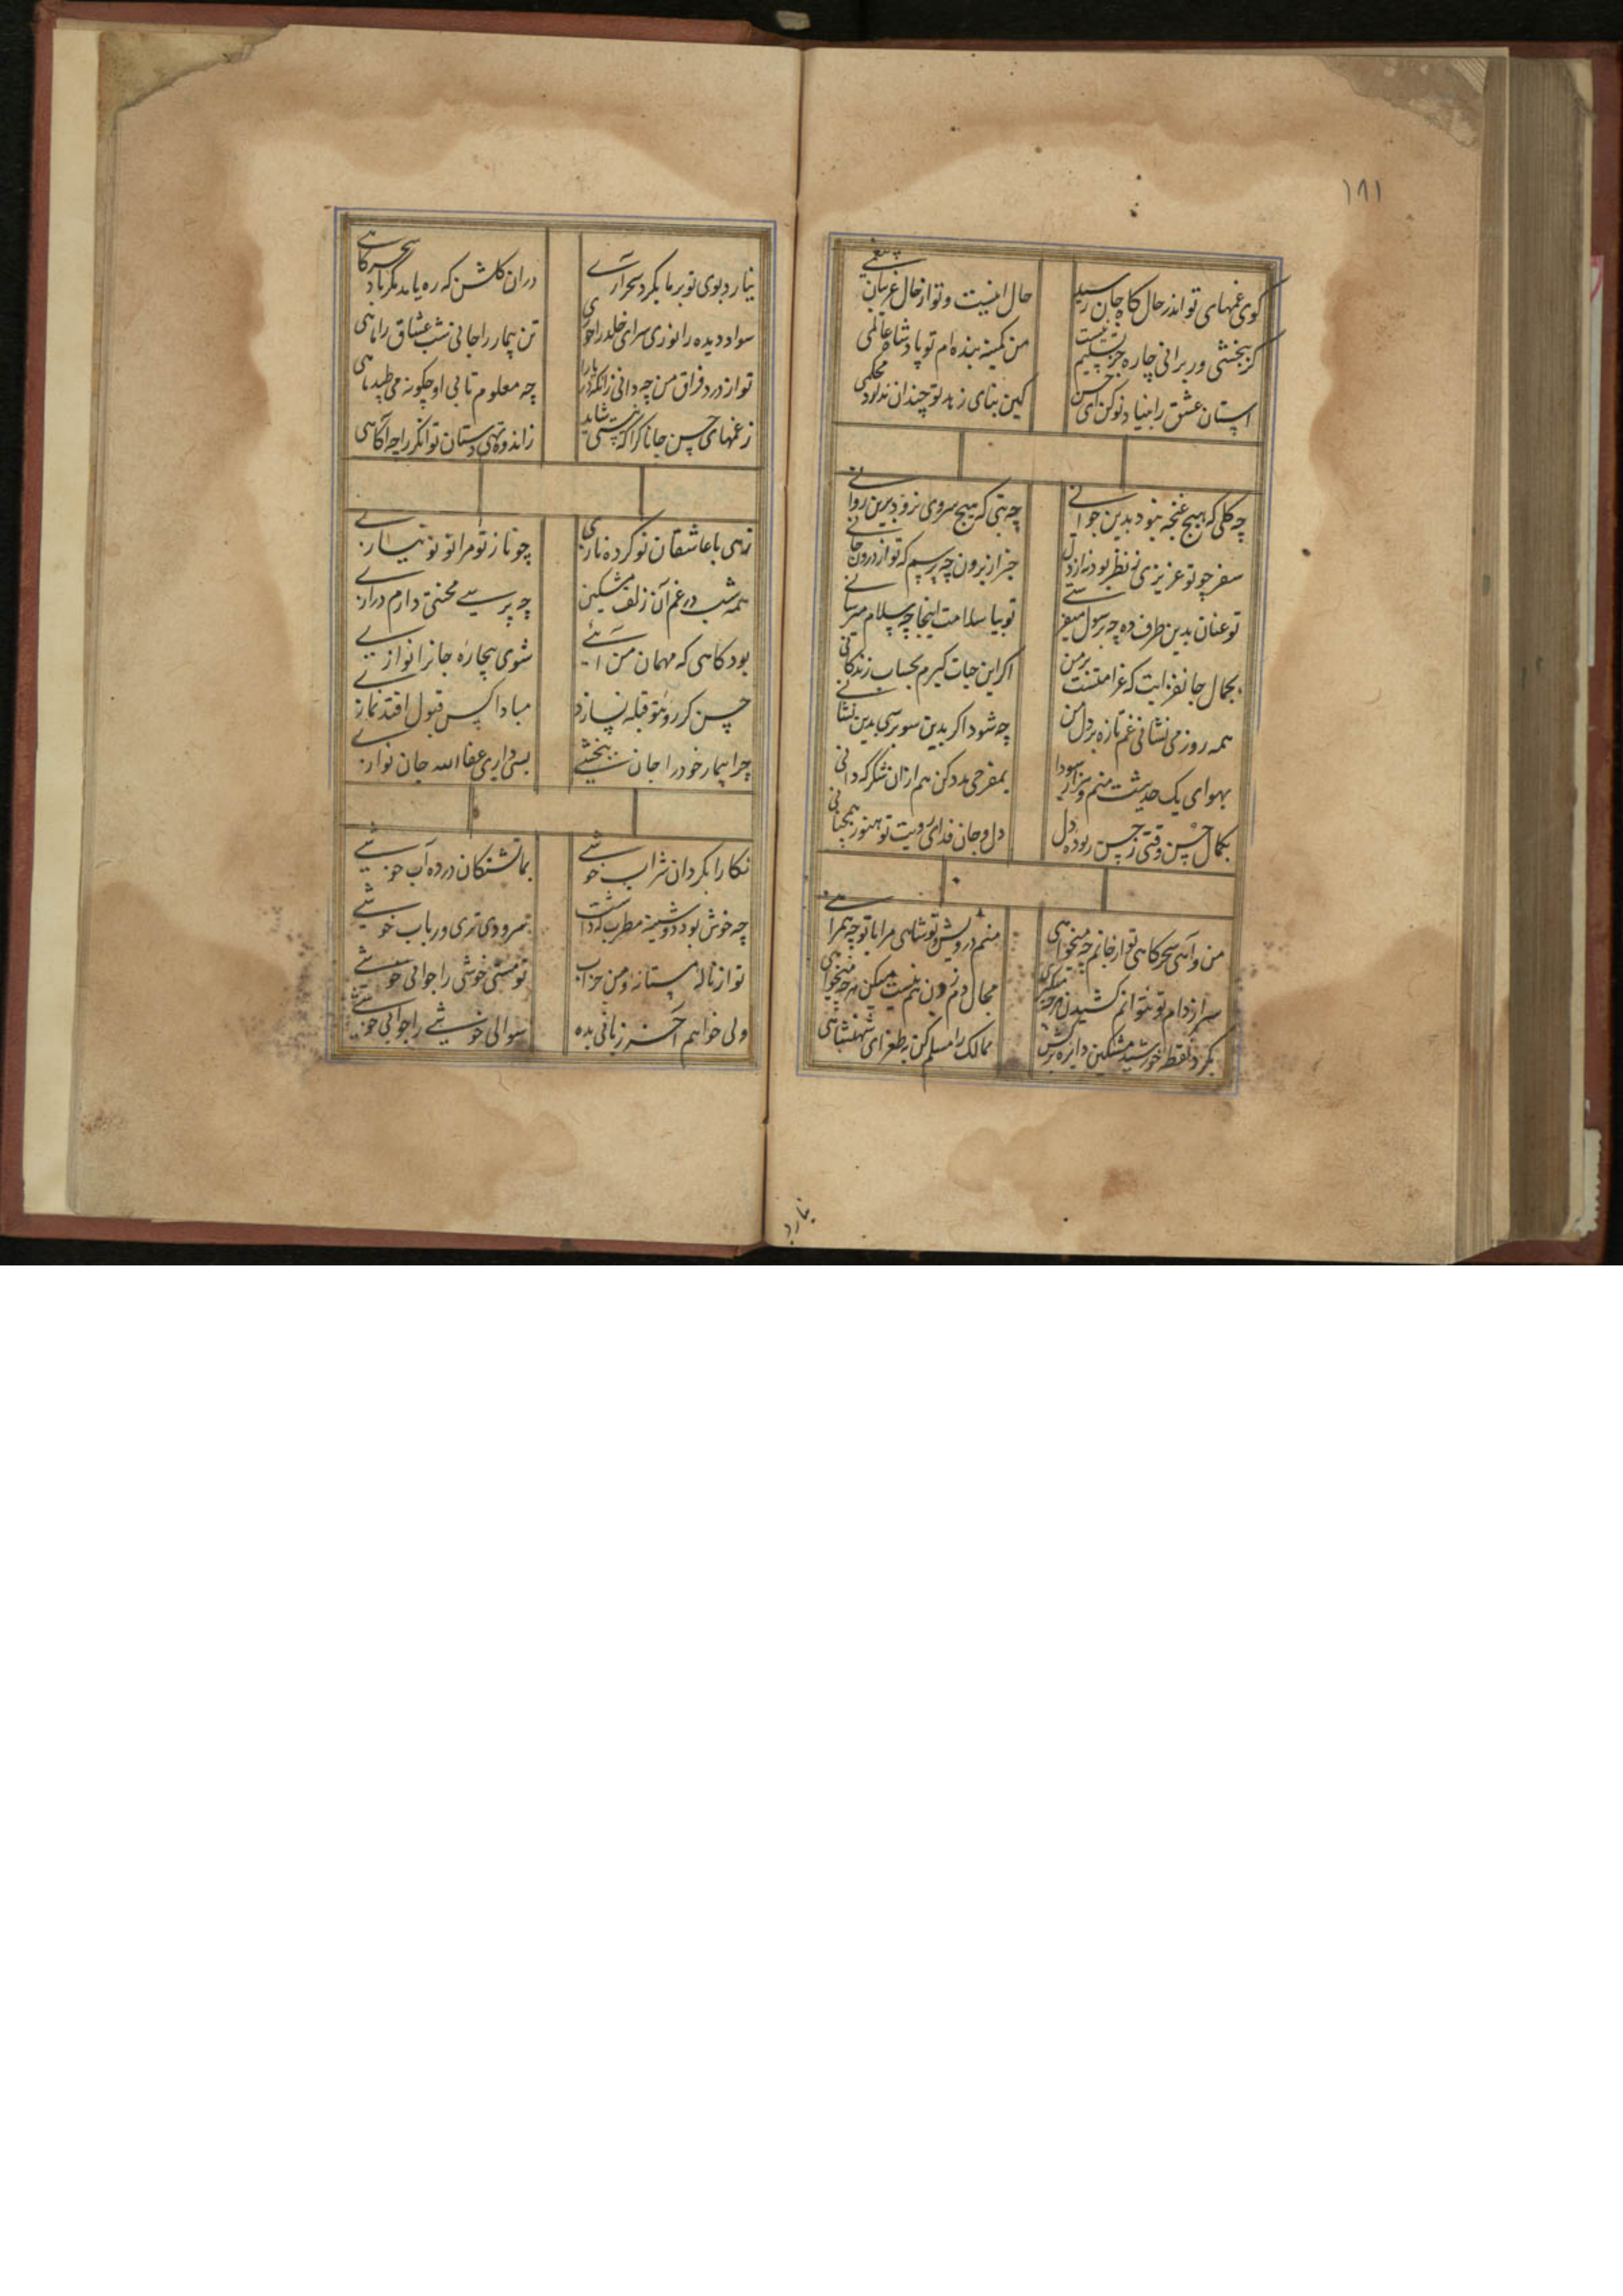 ۱۸۱
کوی غمهای تو اندر حال کاه جان رسید
حال اینست و تو از حال غریبان
کر ببخشی ور برانی چاره جز تسلیم نیست
من کمینه بنده ام تو پادشاه عالمی
استان عشق را بنیاد نو کن ای حسن
کین بنای زهد تو چندان ندارد محکمی
چه کلی که هیچ غنچه نبود بدین جوانی
چه بتی که هیچ سروی نرود بدین روانی
سفر چو تو عزیزی ز نظر بود نه از دل
خبر از برون چه پرسیم که تو از درون جانی
تو عنان بدین طرف ده چه رسول میفرستی
تو بیا سلامت اینجا چه سلام میرسانی
بجمال جانفزایت که غرامتست بر من
اکر این حیات کیرم بحساب زندکانی
همه روز می نشانی غم تازه بر دل من
چه شود اکر بدین سو برسی بدین نشانی
بهوای یک حدیثت منم و هزار سودا
بمفرحی مدد کن هم ازان شکر که دانی
بکمال حسن وقتی ز حسن ربوده دل
دل و جان فدای رویت تو هنوز همچنانی
من و آهی سحرکاهی تو از جانم چه میخواهی
منم درویش و تو شاهی مرا با تو چه همراهی
سر از دام تو نتوانم کشیدن هر چه میکنی
مجال دم زدن هم نیست میکن هر چه میخواهی
بکرد نقطه خورشید مشکین دایره برکش
ممالک را مسلم کن به طغرای شهنشاهی
نیارد
نیارد بوی تو بر ما بکرد سحر آری
دران کلشن که ره یابد مکر باد سحرکاهی
سواد دیده را نوری سرای خلد را حوری
تن بیمار را جانی شب عشاق را ماهی
تو از درد فراق من چه دانی زانکه
چه معلوم تابی او چکونه می طپد ماهی
ز غمهای حسن جانا کرا که نیستی شاید
ز اندوه تهی دستان توانکر را چه آکاهی
زهی با عاشقان نو کرده نازی
چو ناز تو مرا نو نو نیازی
همه شب در غم آن زلف مشکین
چه پرسی محنتی دارم درازی
بود کاهی که مهمان من آئی
شوی بیچاره جانرا نوازی
حسن کر رو بتو قبله نسازد
مبادا کس قبول افتد نمازی
چرا بیمار خود را جان نبخشی
بسی داری عفا الله جان نوازی
نکارا بکردان شراب خوشی
بما تشنکان درده آب خوشی
چه خوش بود دوشینه مطرب که داشت
سرودی تری و رباب خوشی
تو از ناله مستانه و من خراب
تو مستی خوشی را جوابی خوشی
ولی خواهم آخر زبانی بده
سوالی خوشی را جوابی خوشی